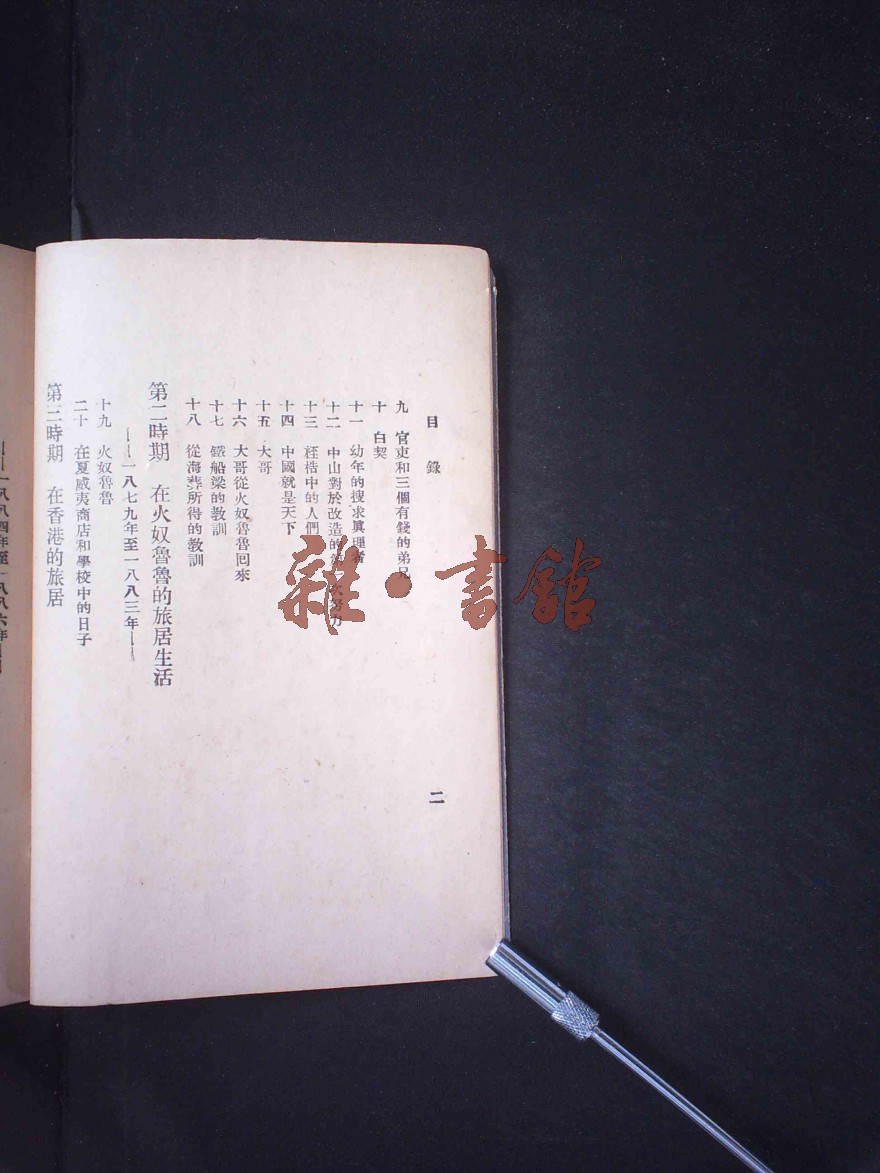 目錄
九 官吏和三個有錢的弟兄
十 白契
十一 幼年的搜求眞理者
十二 中山對於改造的第一次努力
十三 桎梏中的人們
十四 中國就是天下
十五 大哥
十六 大哥從火奴魯魯回來
十七 鐵船梁的教訓
十八 從海葬所得的教訓
第二時期 在火奴魯魯的旅居生活
——一八七九年至一八八三年——
十九 火奴魯魯
二十 在夏威夷商店和學校中的日子
第三時期 在香港的旅居
——一八八四年至一八八六年——
二
雜·書館